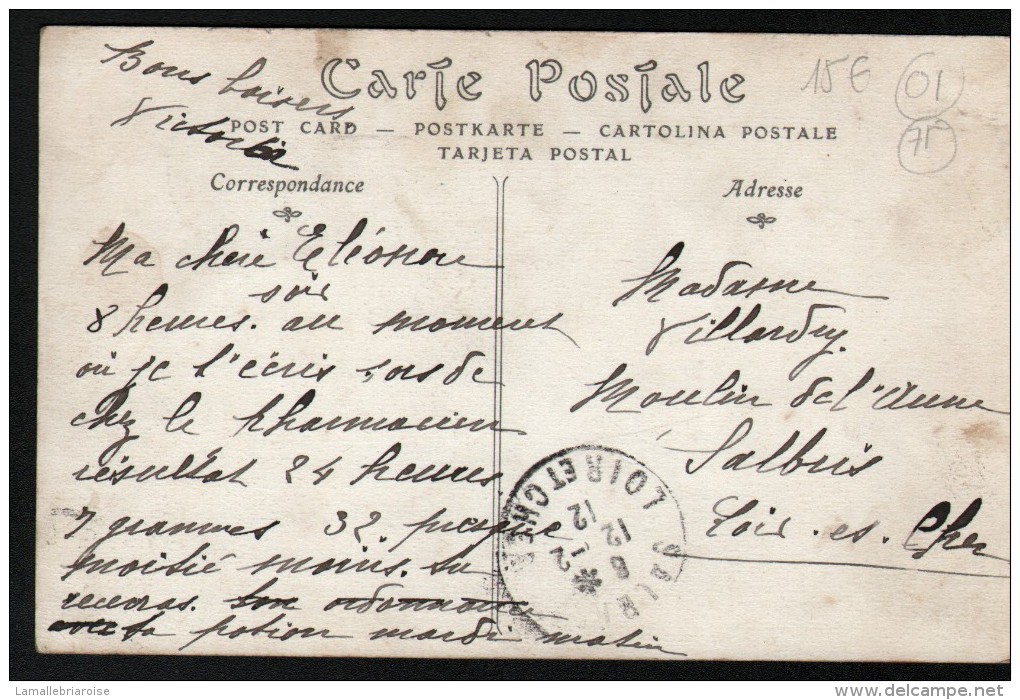 Bons baisers
Victoria
Carte Postale
15€
01
75
POST CARD — POSTKARTE — CARTOLINA POSTALE
TARJETA POSTAL
Correspondance
Adresse
Ma chère Eléonor
soir
8 heures. au moment
où je t'écris sors de
chez le pharmacien
résultat 24 heures
7 grammes 32 presque
moitié moins. tu
recevras. son ordonnance
ta potion mardi matin
Madame
Villardry.
Moulin de l'Aune
Salbris
Loir-et-Cher
SALBRIS
LOIR ET CHER
12
12
8
Lamallebriaroise
delcampe.net